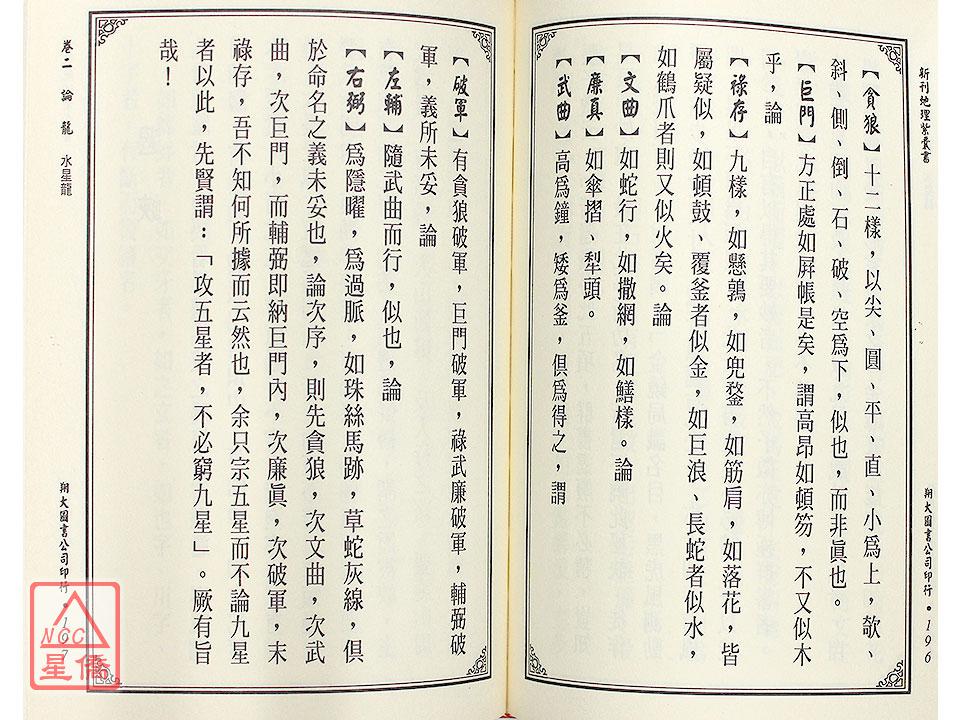 新刊地理紫囊書
【貪狼】十二樣，以尖、圓、平、直、小為上，欹、
斜、側、倒、石、破、空為下，似也，而非眞也。
【巨門】方正處如屛帳是矣，謂高昂如頓笏，不又似木
乎，論
【祿存】九樣，如懸鶉，如兜鍪，如筋肩，如落花，皆
屬疑似，如頓鼓、覆釜者似金，如巨浪、長蛇者似水，
如鶴爪者則又似火矣。論
【文曲】如蛇行，如撒網，如鱔樣。論
【廉真】如傘摺、犁頭。
【武曲】高為鐘，矮為釜，俱為得之，謂
翔大圖書公司印行。196
【破軍】有貪狼破軍，巨門破軍，祿武廉破軍，輔弼破
軍，義所未妥，論
【左輔】隨武曲而行，似也，論
【右弼】為隱曜，為過脈，如珠絲馬跡，草蛇灰線，俱
於命名之義未妥也，論次序，則先貪狼，次文曲，次武
曲，次巨門，而輔弼即納巨門內，次廉眞，次破軍，末
祿存，吾不知何所據而云然也，余只宗五星而不論九星
者以此，先賢謂：「攻五星者，不必窮九星」。厥有旨
哉！
卷二 論龍 水星龍
翔大圖書公司印行。197
NCC
星僑